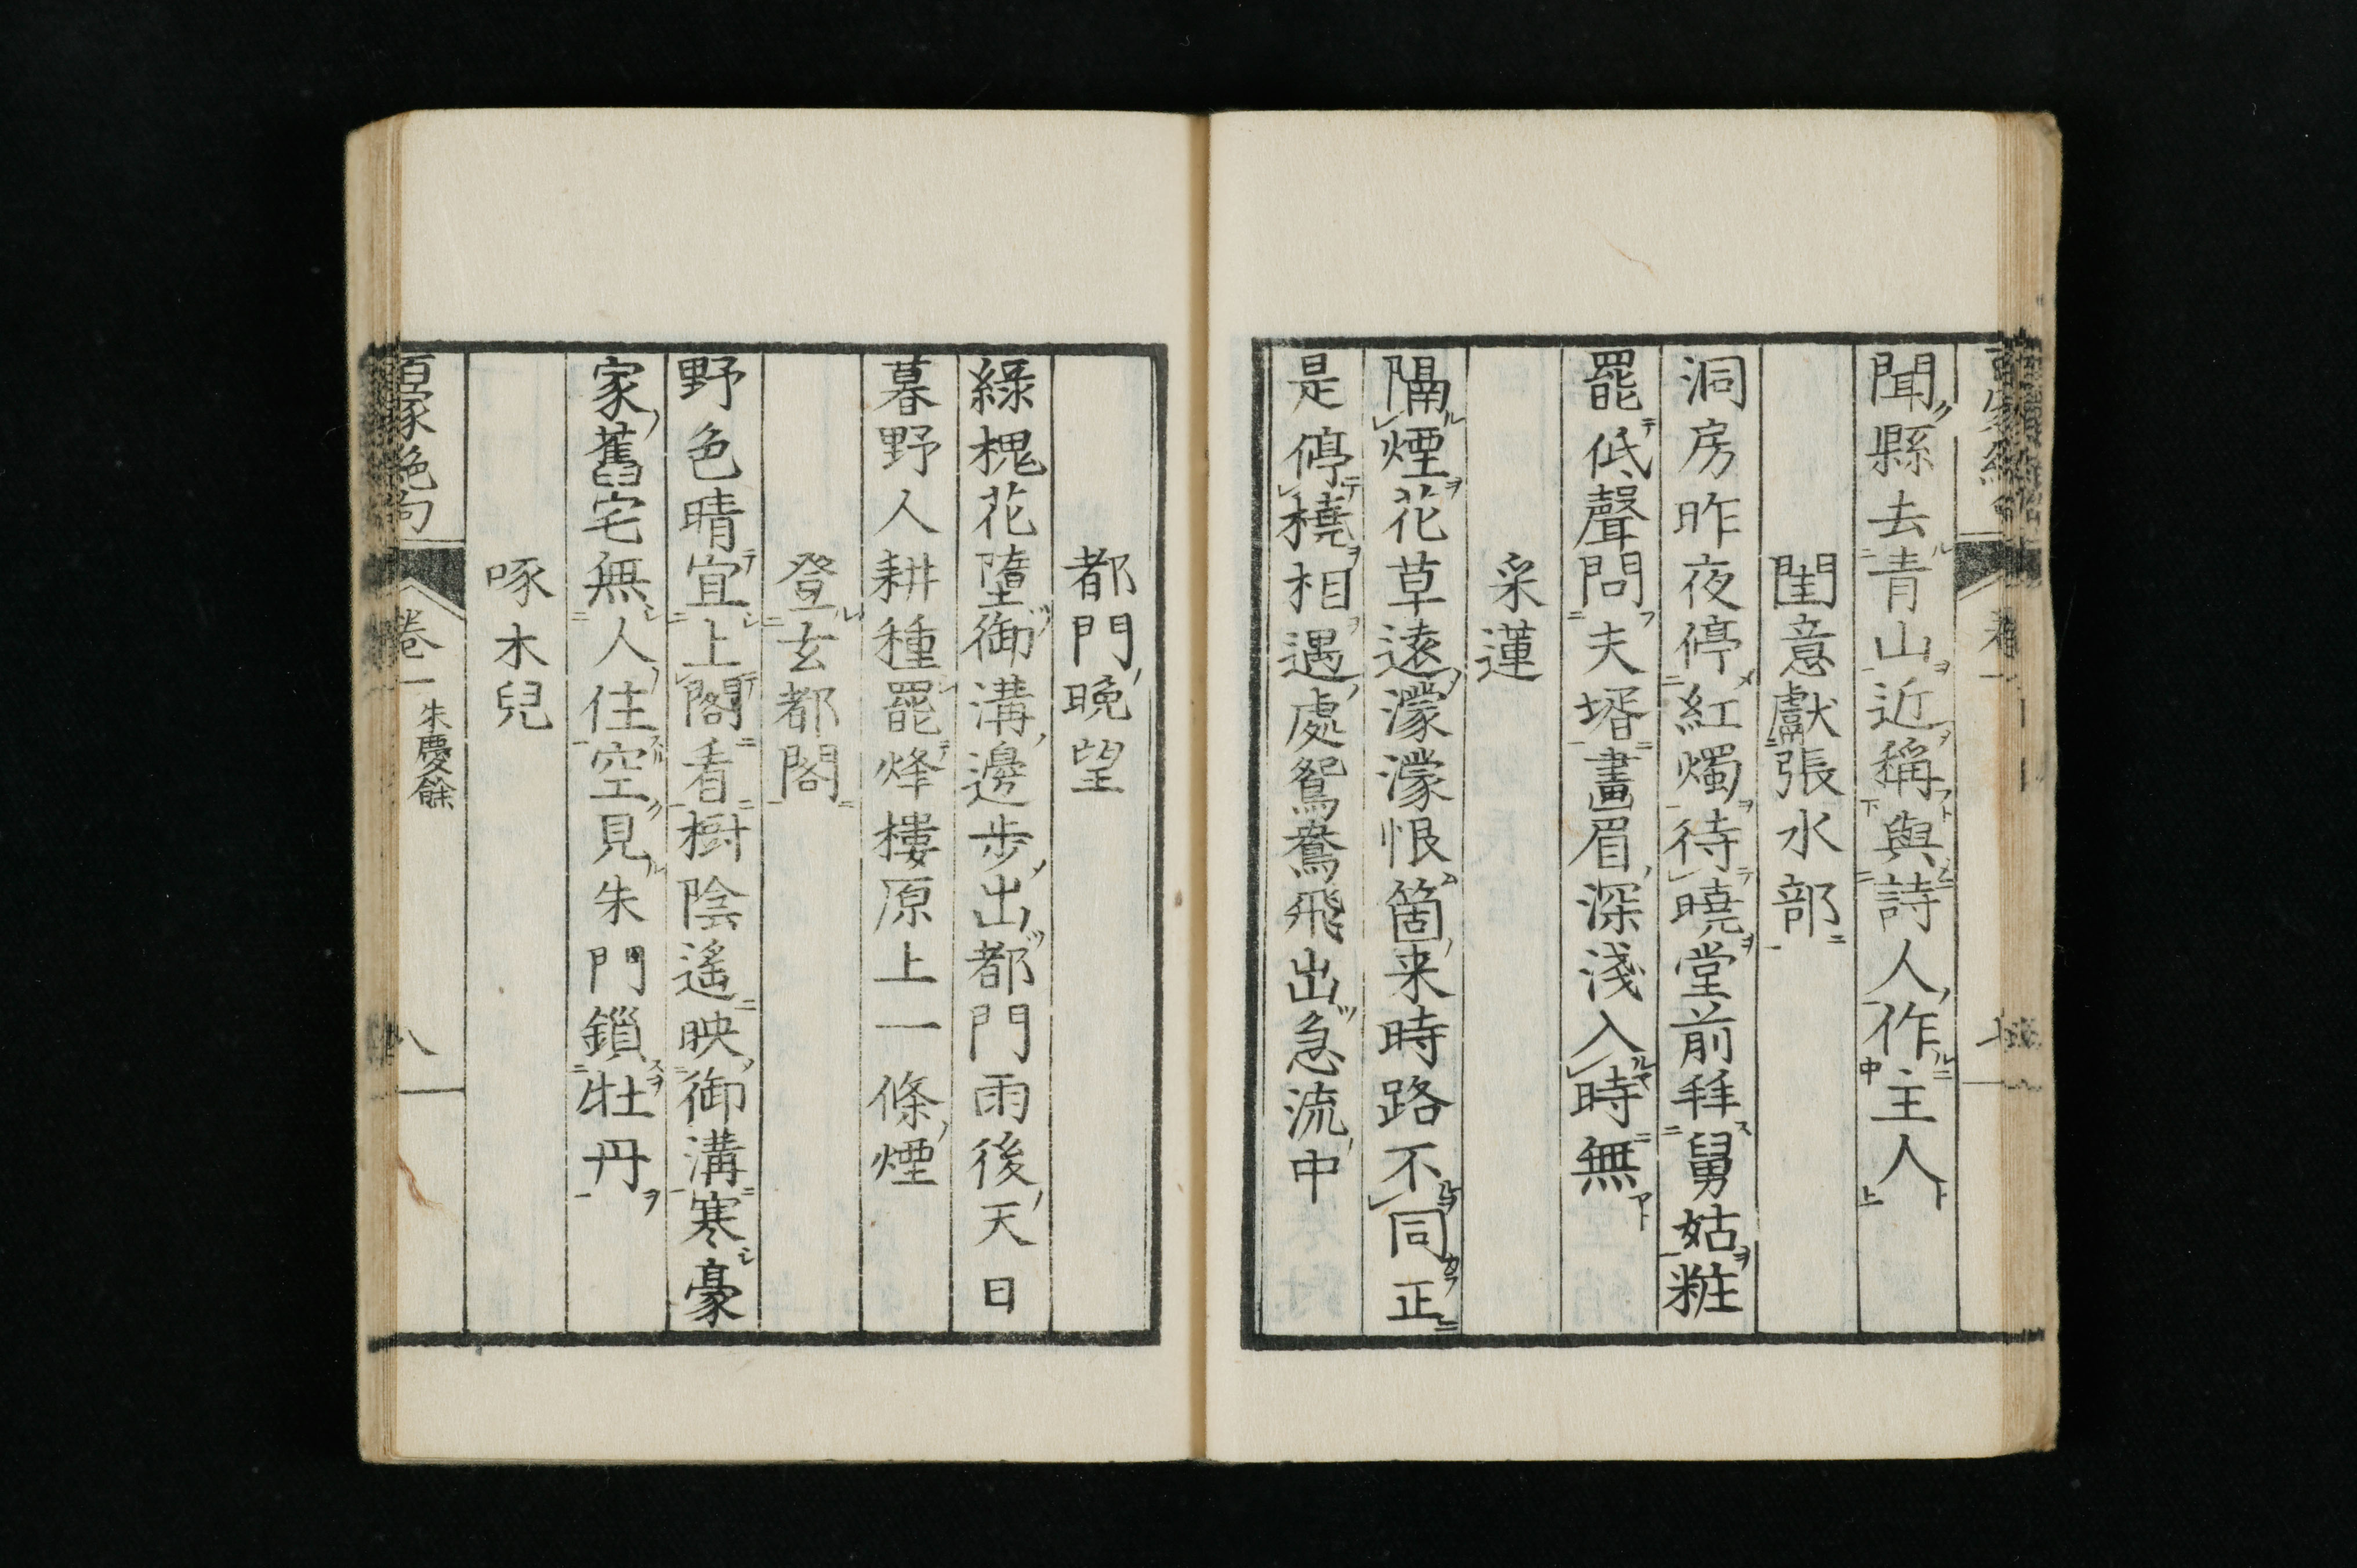 聞縣去青山近稱與詩人作主人
閨意獻張水部
洞房昨夜停紅燭待曉堂前拜舅姑粧
罷低聲問夫壻畫眉深淺入時無
采蓮
隔煙花草遠濛濛恨箇来時路不同正
是停橈相遇處鴛鴦飛出急流中
都門晩望
綠槐花墮御溝邊步出都門雨後天日
暮野人耕種罷烽樓原上一條煙
登玄都閣
野色晴宜上閣看樹陰遙映御溝寒豪
家舊宅無人住空見朱門鎖牡丹
啄木兒
百家絶句 卷一 朱慶餘 八